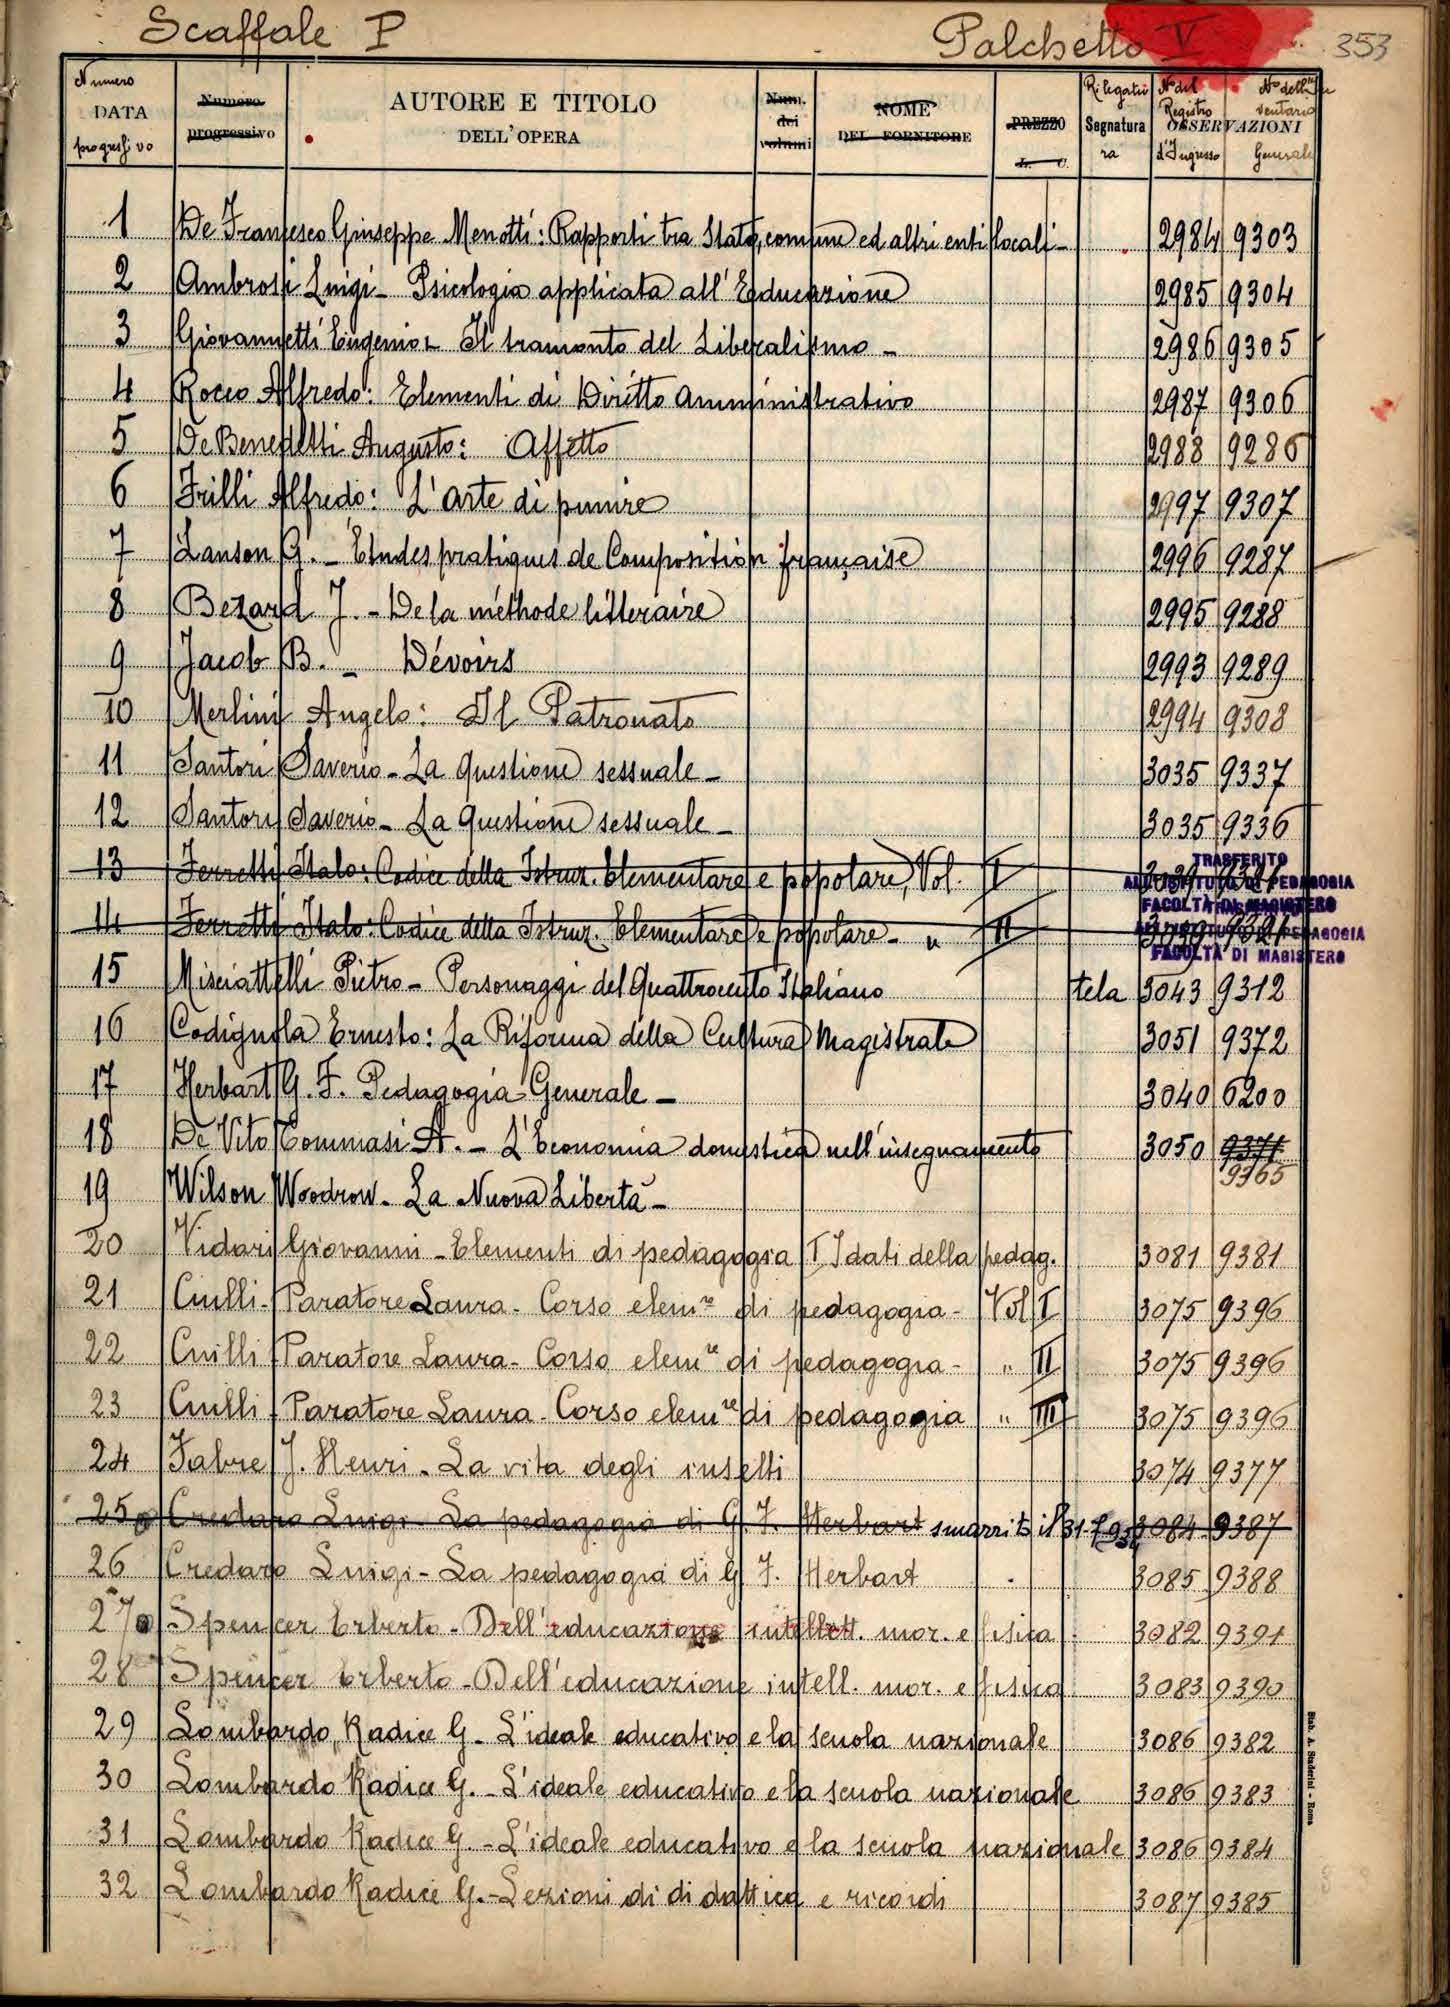 Scaffale P Palchetto V 353
Numero DATA progressivo
Numero progressivo
AUTORE E TITOLO DELL'OPERA
Num. dei volumi
NOME DEL FORNITORE
PREZZO L. C.
Rilegatura Segnatura
N° del Registro d'Ingresso
OSSERVAZIONI
N° dell'Inventario Generale
1 De Francesco Giuseppe Menotti: Rapporti tra Stato, comune ed altri enti locali- 2984 9303
2 Ambrosi Luigi- Psicologia applicata all'Educazione 2985 9304
3 Giovannetti Eugenio- Il tramonto del Liberalismo - 2986 9305
4 Rocco Alfredo: Elementi di Diritto Amministrativo 2987 9306
5 De Benedetti Augusto: Affetto 2988 9286
6 Frilli Alfredo: L'arte di punire 2997 9307
7 Lanson G. - Études pratiques de Composition française 2996 9287
8 Bezard J. - De la méthode litteraire 2995 9288
9 Jacob B. - Dévoirs 2993 9289
10 Merlini Angelo: Il Patronato 2994 9308
11 Santori Saverio - La questione sessuale - 3035 9337
12 Santori Saverio - La questione sessuale - 3035 9336
13 Ferretti Italo: Codice della Istruz. Elementare e popolare, Vol. I
TRASFERITO
ALL'ISTITUTO DI PEDAGOGIA
FACOLTÀ DI MAGISTERO
14 Ferretti Italo: Codice della Istruz. Elementare e popolare - " II 3039 9321
ALL'ISTITUTO DI PEDAGOGIA
FACOLTÀ DI MAGISTERO
15 Misciattelli Pietro - Personaggi del Quattrocento Italiano tela 3043 9312
16 Codignola Ernesto: La Riforma della Cultura Magistrale 3051 9372
17 Herbart G. F. Pedagogia Generale - 3040 6200
18 De Vito Tommasi A. - L'Economia domestica nell'insegnamento 3050 9371
9365
19 Wilson Woodrow - La Nuova Libertà -
20 Vidari Giovanni - Elementi di pedagogia I I dati della pedag. 3081 9381
21 Ciulli - Paratore Laura - Corso elem.re di pedagogia - Vol I 3075 9396
22 Ciulli - Paratore Laura - Corso elem.re di pedagogia - " II 3075 9396
23 Ciulli - Paratore Laura - Corso elem.re di pedagogia " III 3075 9396
24 Fabre J. Henri - La vita degli insetti 3074 9377
25 Credaro Luigi - La pedagogia di G. F. Herbart smarrito il 3084 9387
26 Credaro Luigi - La pedagogia di G. F. Herbart 3085 9388
27 Spencer Erberto - Dell'educazione intellett. mor. e fisica 3082 9391
28 Spencer Erberto - Dell'educazione intell. mor. e fisica 3083 9390
29 Lombardo Radice G. - L'ideale educativo e la scuola nazionale 3086 9382
30 Lombardo Radice G. - L'ideale educativo e la scuola nazionale 3086 9383
31 Lombardo Radice G. - L'ideale educativo e la scuola nazionale 3086 9384
32 Lombardo Radice G. - Lezioni di didattica e ricordi 3087 9385
Stab. A. Staderini - Roma